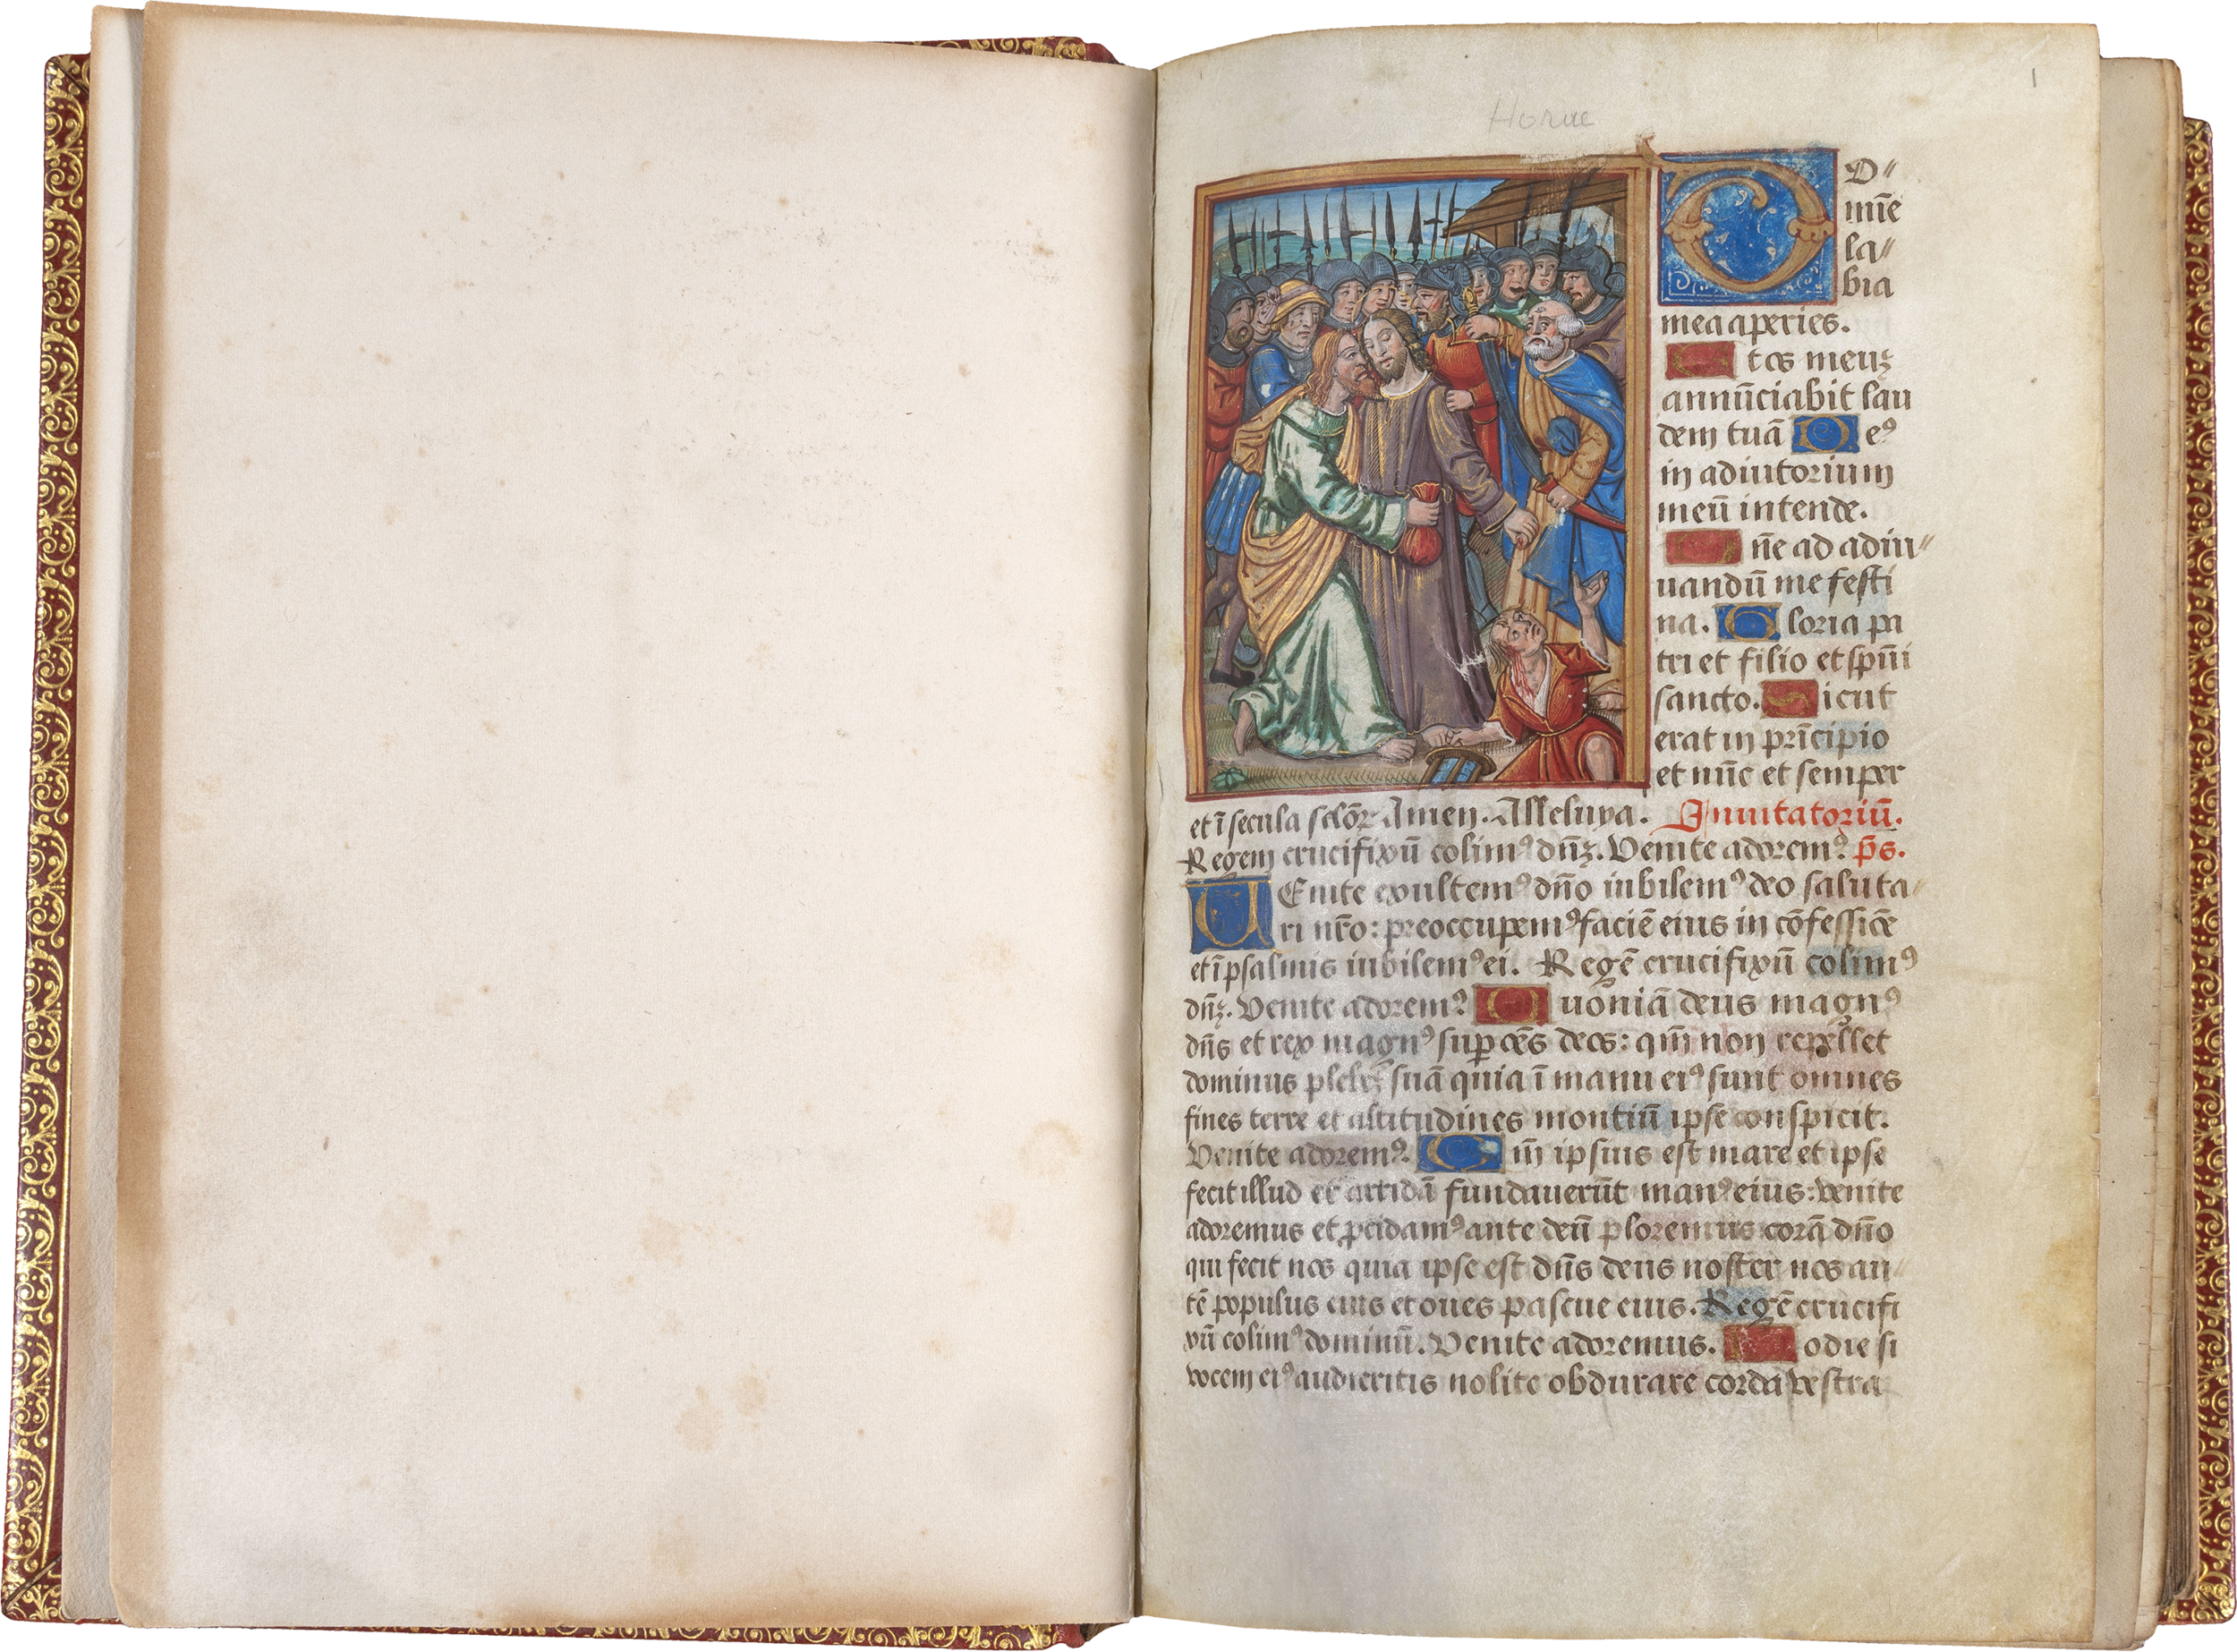 Horae
1
D O⸗
mīe
la⸗
bia
mea aperies.
E t os meuꝫ
annūciabit lau
dem tuā D eꝰ
in adiutorium
meū intende.
D ñe ad adiu⸗
uandū me festi
na. G loria pa
tri et filio et spūi
sancto. S icut
erat in prīcipio
et nūc et semper
et ī secula sclōꝝ Amen. Alleluya. Inuitatoriū.
Regem crucifixū colimꝰ dñꝫ. Venite adoremꝰ. p̄s.
V Enite exultemꝰ dño iubilemꝰ deo saluta⸗
ri nr̄o: preoccupemꝰ faciē eius in cōfessiōe
et ī psalmis iubilemꝰ ei. Regē crucifixū colimꝰ
dñꝫ. Venite adoremꝰ. Q uoniā deus magnꝰ
dñs et rex magnꝰ sup oēs deos: qm̄ non repellet
dominus plebē suā quia ī manu eiꝰ sunt omnes
fines terre et altitudines montiū ipse conspicit.
Venite adoremꝰ. Q m̄ ipsius est mare et ipse
fecit illud et arridā fundauerūt manꝰ eius: venite
adoremus et ꝓcidamꝰ ante deū ploremus corā dño
qui fecit nos quia ipse est dñs deus noster nos au⸗
tē populus eius et oues pascue eius. Regē crucifi
xū colimꝰ dominū. Venite adoremus. H odie si
vocem eiꝰ audieritis nolite obdurare corda vestra